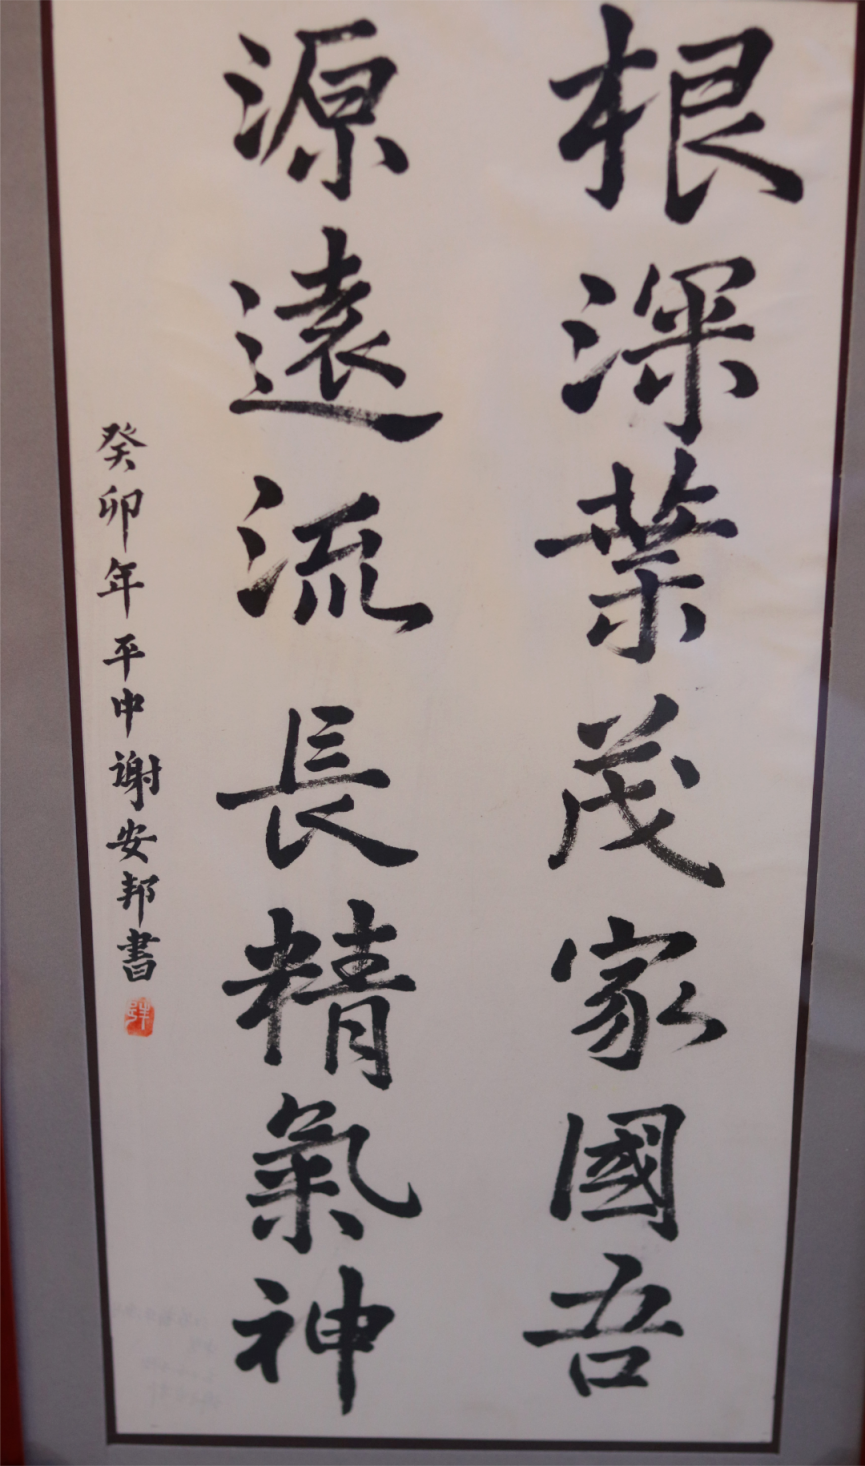 根深葉茂家國吾
源遠流長精氣神
癸卯年平申謝安邦書